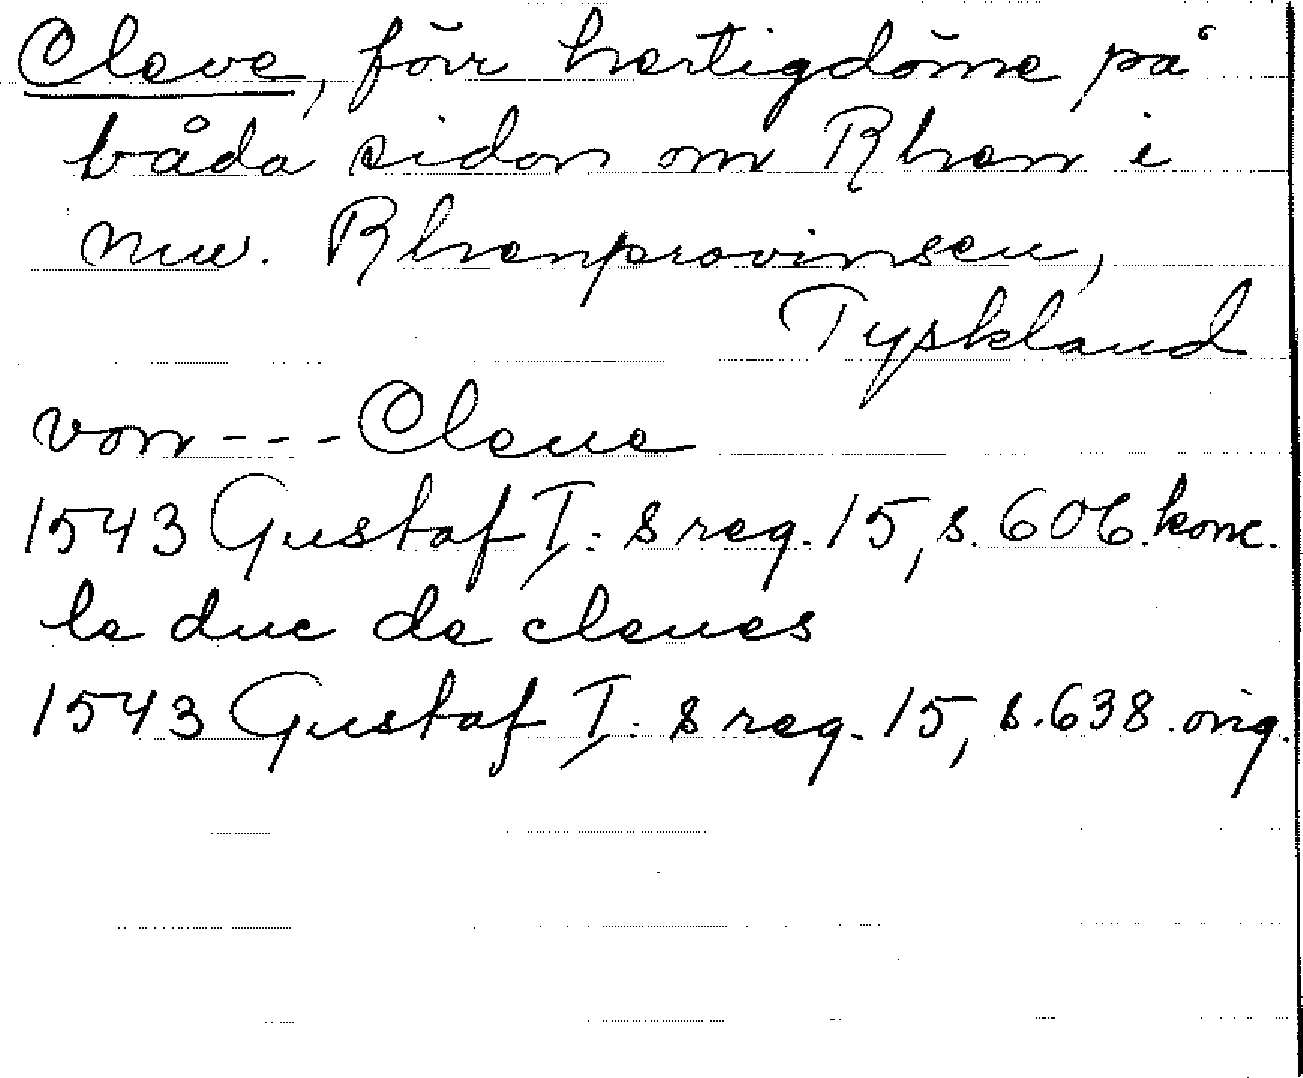 Cleve, förr hertigdöme på
båda sidor om Rhen i
nuv. Rhenprovinsen,
Tyskland
von --- Cleue
1543 Gustaf I:s reg. 15, s. 606. konc.
le duc de cleues
1543 Gustaf I:s reg. 15, s. 638. orig.